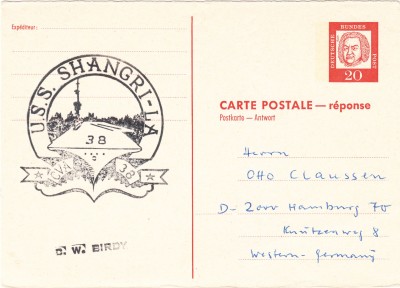 Expéditeur:
U.S.S. SHANGRI-LA
38
CVA 38
D. W. BIRDY
DEUTSCHE BUNDESPOST
20
CARTE POSTALE — réponse
Postkarte — Antwort
Herrn
Otto Claussen
D- 2000 Hamburg 70
Knützenweg 8
Western-Germany